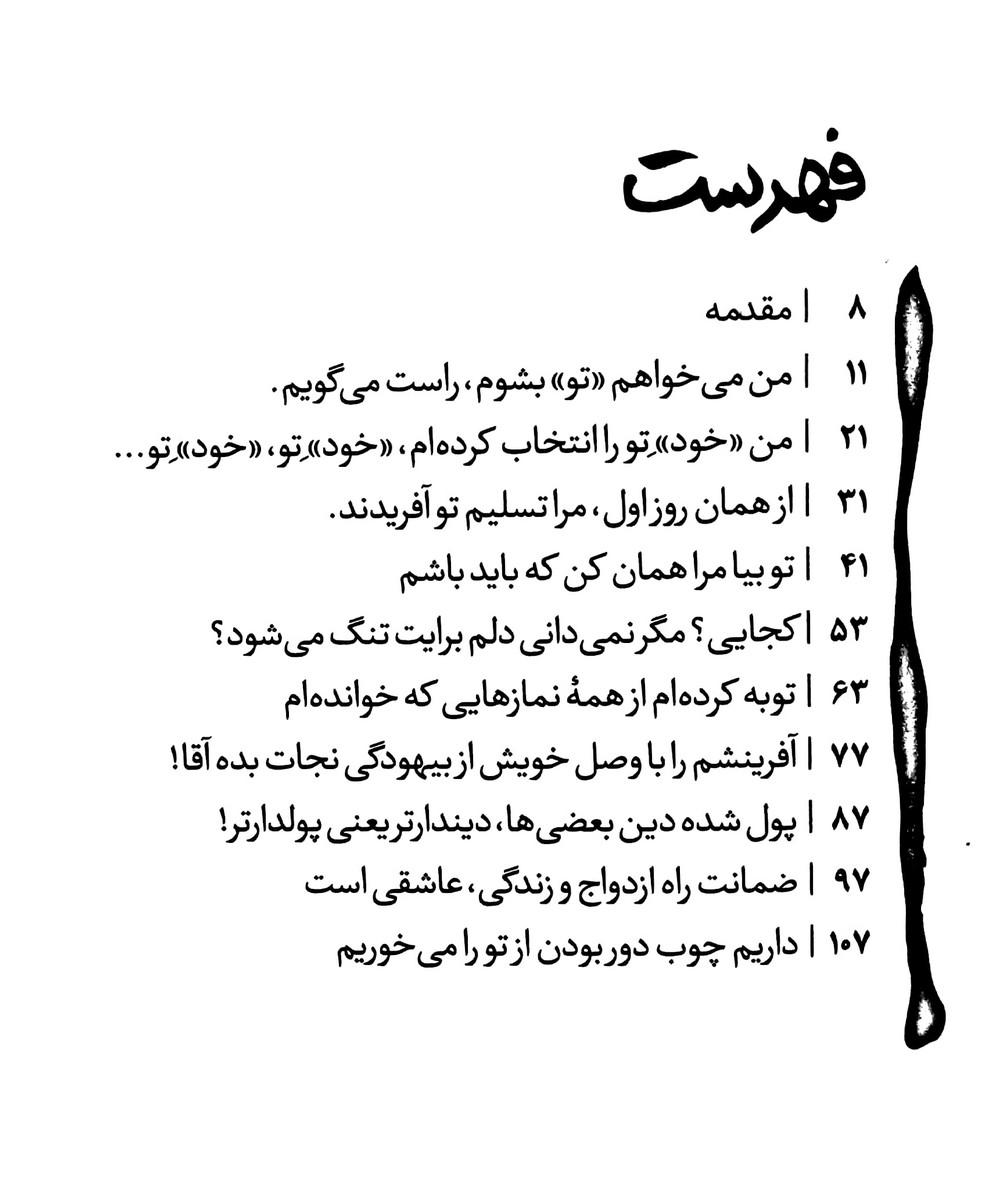 فهرست
۸ | مقدمه
۱۱ | من می‌خواهم «تو» بشوم، راست می‌گویم.
۲۱ | من «خود»ِتو را انتخاب کرده‌ام، «خود»ِتو، «خود»ِتو...
۳۱ | از همان روز اول، مرا تسلیم تو آفریدند.
۴۱ | تو بیا مرا همان کن که باید باشم
۵۳ | کجایی؟ مگر نمی‌دانی دلم برایت تنگ می‌شود؟
۶۳ | توبه کرده‌ام از همهٔ نمازهایی که خوانده‌ام
۷۷ | آفرینشم را با وصل خویش از بیهودگی نجات بده آقا!
۸۷ | پول شده دین بعضی‌ها، دیندارتر یعنی پولدارتر!
۹۷ | ضمانت راه ازدواج و زندگی، عاشقی است
۱۰۷ | داریم چوب دور بودن از تو را می‌خوریم